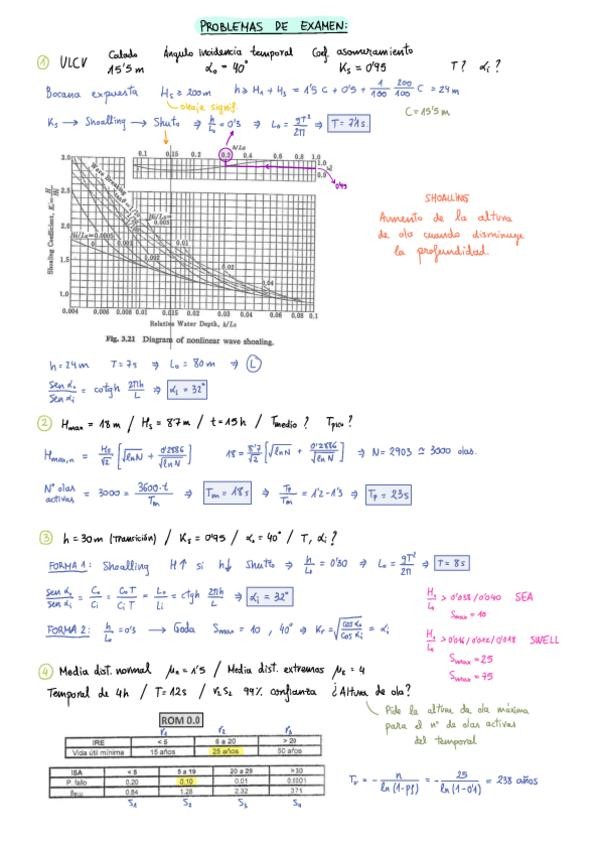 PROBLEMAS DE EXAMEN:
① ULCV
Calado 15'5 m
Ángulo incidencia temporal α₀ = 40°
Coef. asomeramiento Ks = 0'95
T? αi?
Bocana expuesta Hs ≥ 200m h ≥ H1 + H3 = 1'5 C + 0'5 + 1/100 200/100 C = 24m
C = 15'5 m
oleaje signif.
Ks → Shoalling → Shuto ⇒ h/L₀ = 0'3 ⇒ L₀ = gT²/2π ⇒ T = 7'1s
h/L₀
0.1 0.15 0.2 0.3 0.4 0.6 0.8 1.0
1.0
0.9
0'95
Shoaling Coefficient, K = H/H₀'
3.0
2.5
2.0
1.5
1.0
Wave Breaking
0.004 0.006 0.008 0.01 0.015 0.02 0.03 0.04 0.06 0.08 0.1
Relative Water Depth, h/L₀
Fig. 3.21 Diagram of nonlinear wave shoaling.
SHOALLING
Aumento de la altura
de ola cuando disminuye
la profundidad.
h = 24m T = 7s ⇒ L₀ = 80m ⇒ Ⓛ
Sen α₀/Sen αi = cotgh 2πh/L ⇒ αi = 32°
② Hmax = 18m / Hs = 8'7m / t = 15h / Tmedio? Tpico?
Hmax,n = Hs/√2 [√lnN + 0'2886/√lnN] 18 = 8'7/√2 [√lnN + 0'2886/√lnN] ⇒ N = 2903 ≃ 3000 olas.
Nº olas activas = 3000 = 3600·t/Tm ⇒ Tm = 18s ⇒ Tp/Tm = 1'2-1'3 ⇒ Tp = 23s
③ h = 30m (Transición) / Ks = 0'95 / α₀ = 40° / T, αi?
FORMA 1: Shoalling H↑ si h↓ Shuto ⇒ h/L₀ = 0'30 ⇒ L₀ = gT²/2π ⇒ T = 8s
Sen α₀/Sen αi = C₀/Ci = C₀T/CiT = L₀/Li = ctgh 2πh/L ⇒ αi = 32°
FORMA 2: h/L₀ = 0'3 → Goda Smax = 10, 40° ⇒ Kr = √(cos α₀/cos αi) = αi
H₀/L₀ > 0'038 / 0'040 SEA
Smax = 10
H₀/L₀ > 0'016 / 0'012 / 0'018 SWELL
Smax = 25
Smax = 75
④ Media dist. normal μn = 1'5 / Media dist. extremas μE = 4
Temporal de 4h / T = 12s / r2S2 99% confianza ¿Altura de ola?
Pide la altura de ola máxima
para el nº de olas activas
del temporal
ROM 0.0
r1 r2 r3
IRE < 5 6 a 20 > 20
Vida útil mínima 15 años 25 años 50 años
ISA < 5 5 a 19 20 a 29 >30
P. fallo 0.20 0.10 0.01 0.0001
0.84 1.28 2.32 3.71
S1 S2 S3 S4
Tr = - n/ln(1-pf) = - 25/ln(1-0'1) = 238 años